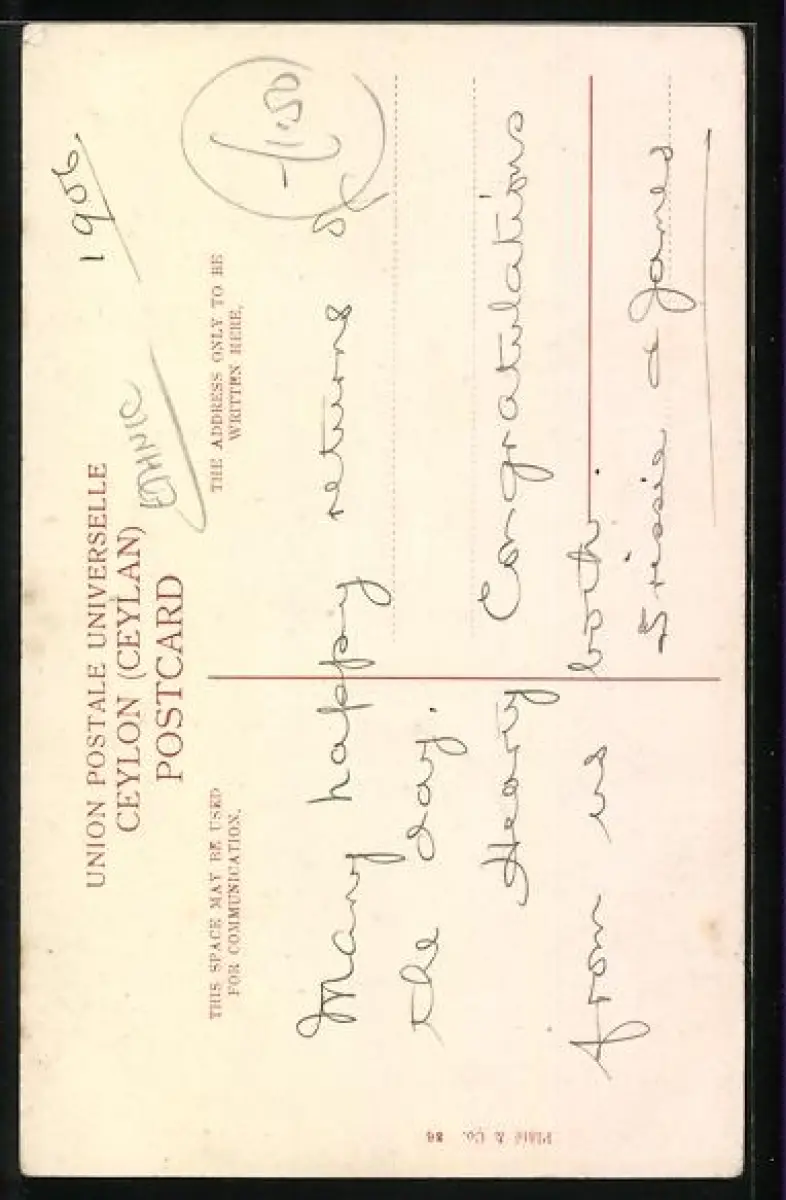 UNION POSTALE UNIVERSELLE
CEYLON (CEYLAN)
POSTCARD
1906.
ETHNIC
1.50
THIS SPACE MAY BE USED
FOR COMMUNICATION.
THE ADDRESS ONLY TO BE
WRITTEN HERE.
Many happy returns of
the day.
Hearty Congratulations
from us both.
& James
Plâté & Co. 86